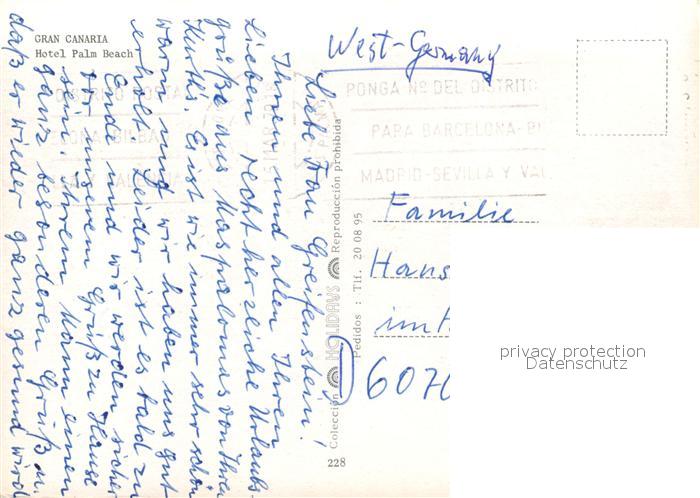 GRAN CANARIA
Hotel Palm Beach
West-Germany
Liebe Frau Greifenstein!
Ihnen und allen Ihren
Lieben recht herzliche Urlaubs-
grüße aus Maspalomas von Ihren
Es ist wie immer sehr schön
warm und wir haben uns gut
erholt. Leider ist es bald zu
Ende und wir werden sicher
mit unserem Gruß zu Hause
sein. Ihrem Mann einen
ganz besonderen Gruß u.
daß er wieder ganz gesund wird
PONGA Nº DEL DISTRITO
PARA BARCELONA-BI
MADRID-SEVILLA Y VAL
Colección HOLIDAYS Reproducción prohibida
Pedidos : Tlf. 20 08 95
Familie
Hans
im
6070
228
privacy protection
Datenschutz